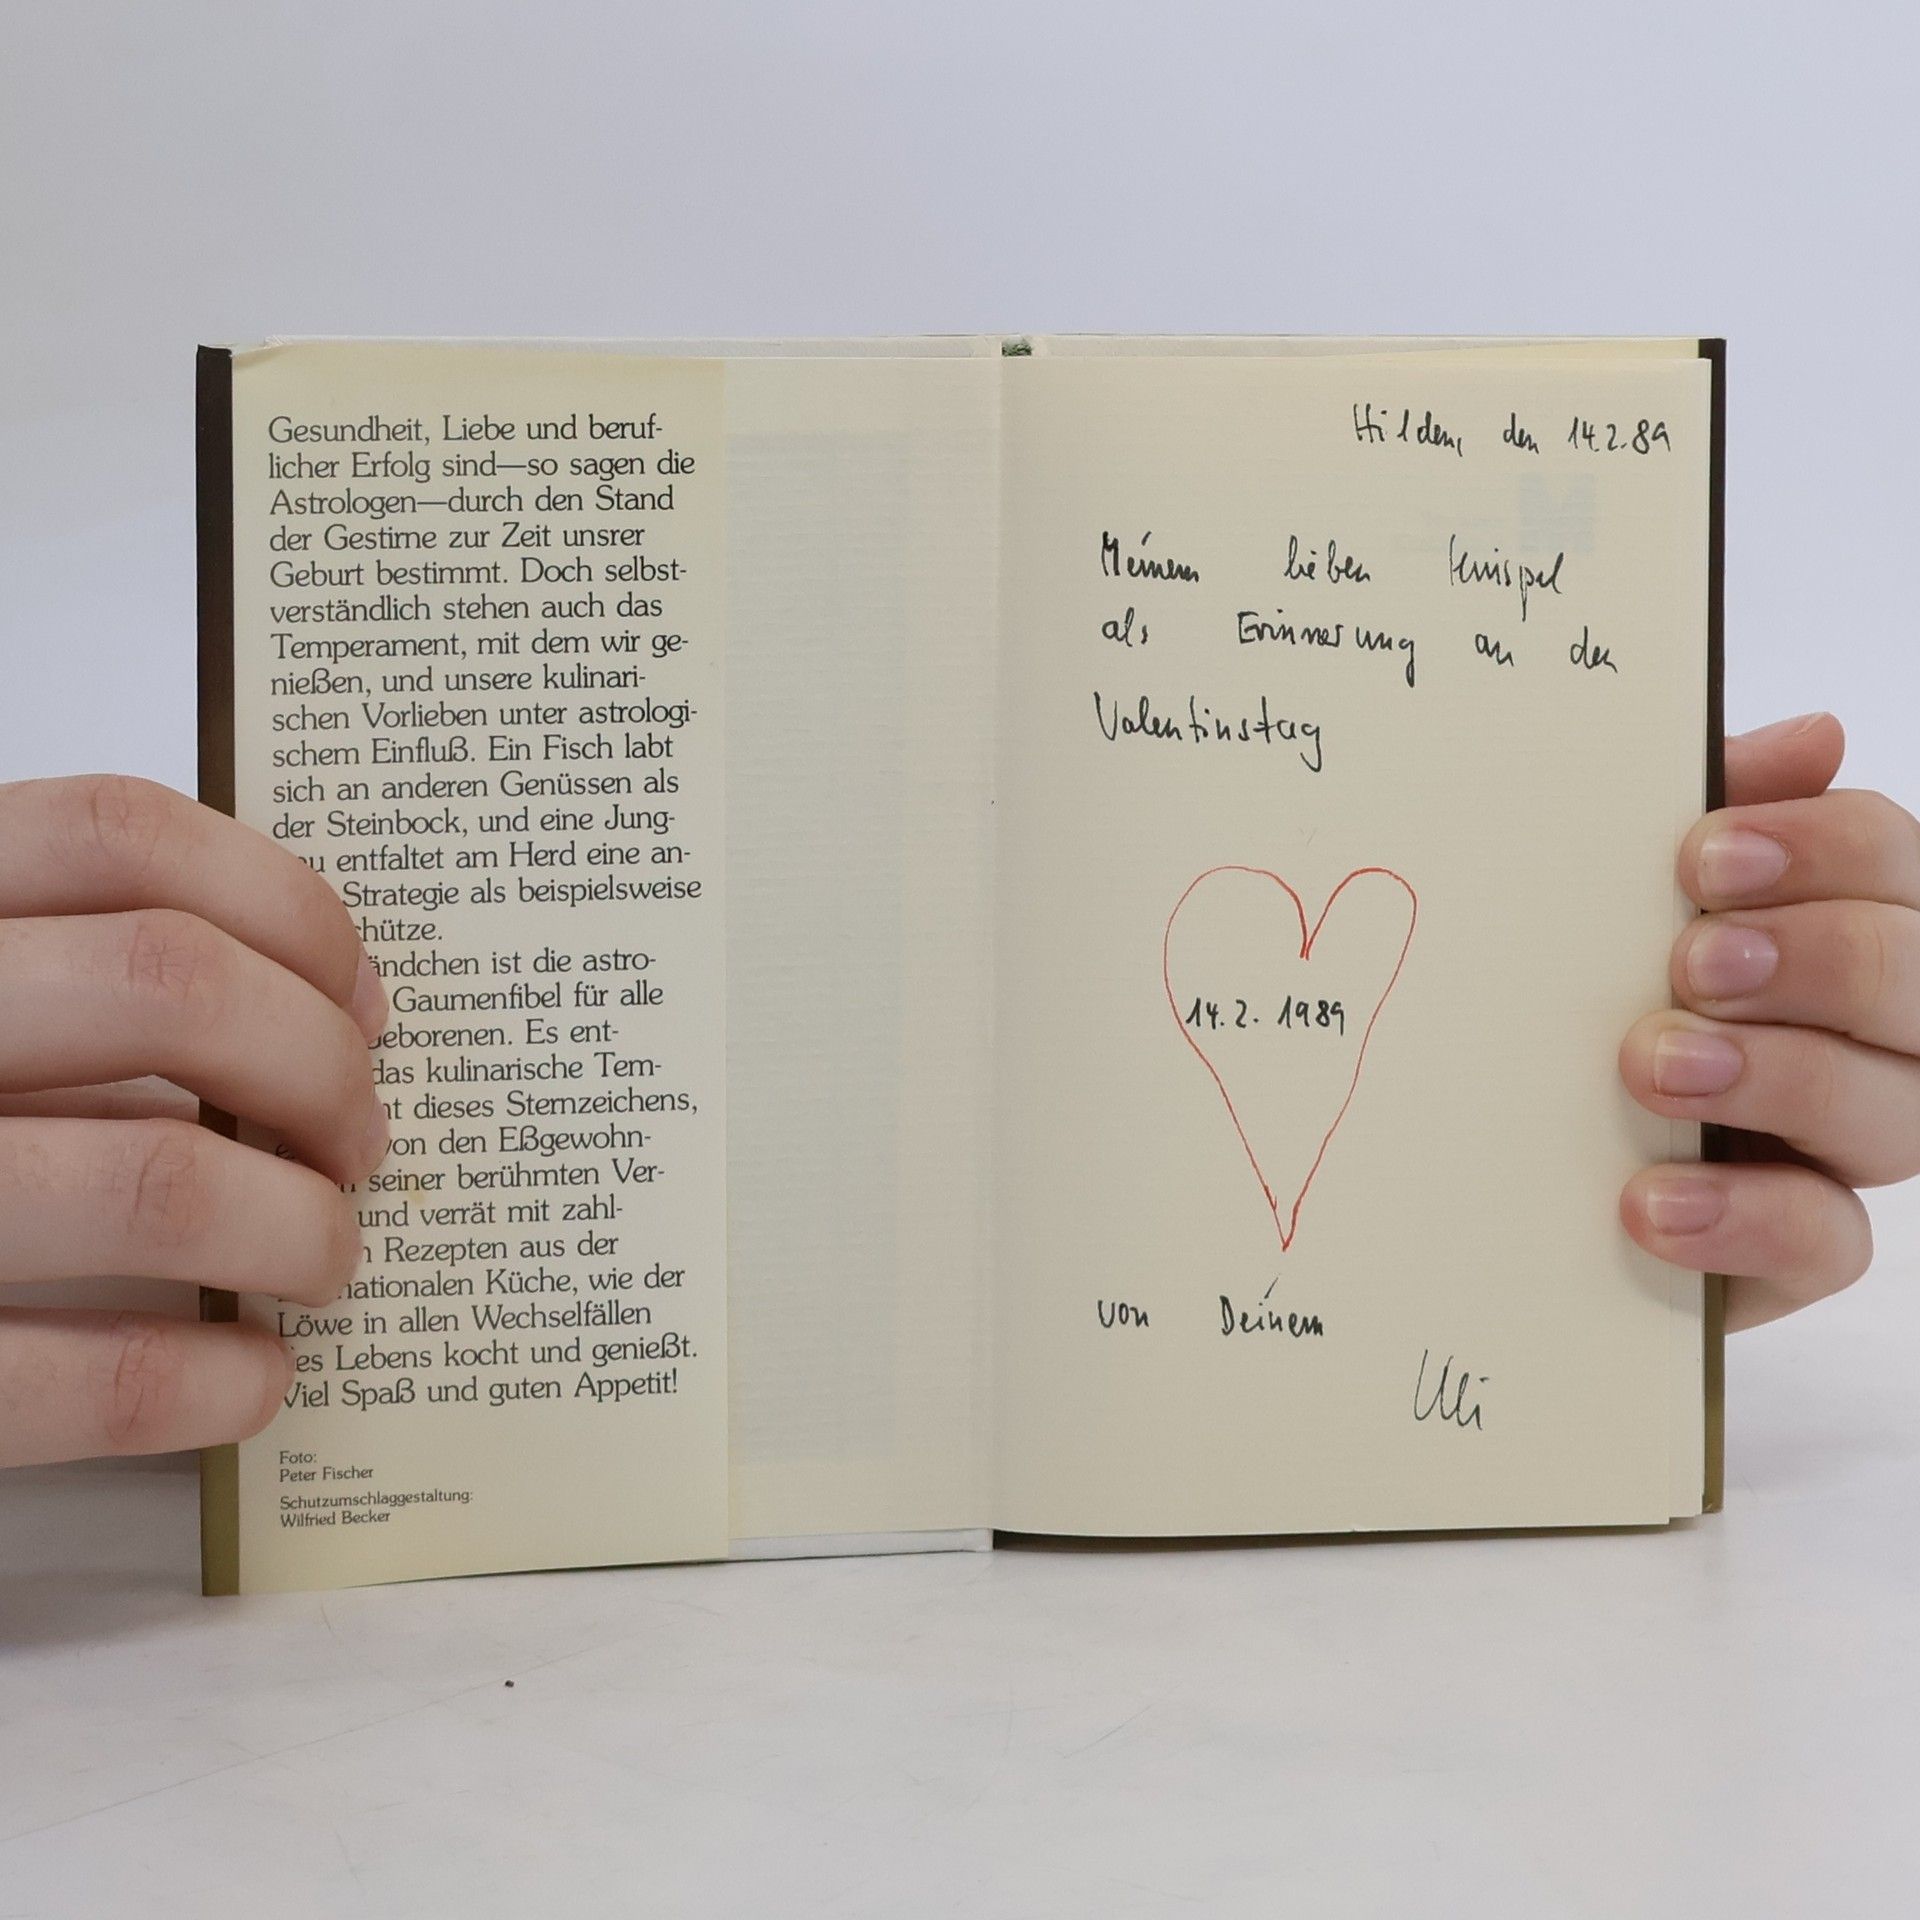 Gesundheit, Liebe und beruf-
licher Erfolg sind—so sagen die
Astrologen—durch den Stand
der Gestirne zur Zeit unsrer
Geburt bestimmt. Doch selbst-
verständlich stehen auch das
Temperament, mit dem wir ge-
nießen, und unsere kulinari-
schen Vorlieben unter astrologi-
schem Einfluß. Ein Fisch labt
sich an anderen Genüssen als
der Steinbock, und eine Jung-
entfaltet am Herd eine an-
Strategie als beispielsweise
hütze.
ändchen ist die astro-
Gaumenfibel für alle
eborenen. Es ent-
das kulinarische Tem-
nt dieses Sternzeichens,
von den Eßgewohn-
seiner berühmten Ver-
und verrät mit zahl-
n Rezepten aus der
nationalen Küche, wie der
Löwe in allen Wechselfällen
es Lebens kocht und genießt.
Viel Spaß und guten Appetit!
Foto:
Peter Fischer
Schutzumschlaggestaltung:
Wilfried Becker
Hilden, den 14.2.89
Meinem lieben
als Erinnerung an den
Valentinstag
14.2.1989
von Deinem
Uli